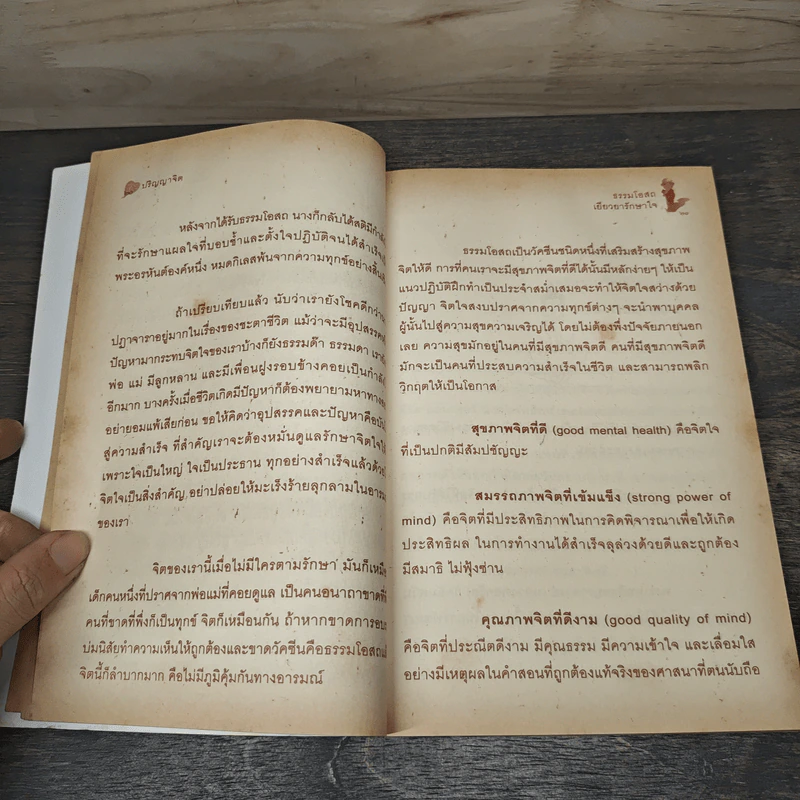 ปริญญาจิต
หลังจากได้รับธรรมโอสถ นางก็กลับได้สติมี
ที่จะรักษาแผลใจที่บอบช้ำและตั้งใจปฏิบัติจนได้สำเร็จ
พระอรหันต์องค์หนึ่ง หมดกิเลสพ้นจากความทุกข์อย่าง
ถ้าเปรียบเทียบแล้ว นับว่าเรายังโชคดีกว่า
ปฏาจาราอยู่มากในเรื่องของชะตาชีวิต แม้ว่าจะมี
ปัญหามากระทบจิตใจของเราบ้างก็ยังธรรมด๊า ธรรมดา
พ่อ แม่ มีลูกหลาน และมีเพื่อนฝูงรอบข้างคอยเป็น
อีกมาก บางครั้งเมื่อชีวิตเกิดมีปัญหาก็ต้องพยายามหา
อย่ายอมแพ้เสียก่อน ขอให้คิดว่าอุปสรรคและปัญหาคือ
สู่ความสำเร็จ ที่สำคัญเราจะต้องหมั่นดูแลรักษาจิตใจ
เพราะใจเป็นใหญ่ ใจเป็นประธาน ทุกอย่างสำเร็จแล้วด้วย
จิตใจเป็นสิ่งสำคัญ อย่าปล่อยให้มะเร็งร้ายลุกลามใน
ของเรา
จิตของเรานี้เมื่อไม่มีใครตามรักษา มันก็
เด็กคนหนึ่งที่ปราศจากพ่อแม่ที่คอยดูแล เป็นคนอนาถาขาด
คนที่ขาดที่พึ่งก็เป็นทุกข์ จิตก็เหมือนกัน ถ้าหากขาดการ
บ่มนิสัยทำความเห็นให้ถูกต้องและขาดวัคซีนคือธรรมโอสถ
จิตนี้ก็ลำบากมาก คือไม่มีภูมิคุ้มกันทางอารมณ์
ธรรมโอสถ
เยียวยารักษาใจ
ธรรมโอสถเป็นวัคซีนชนิดหนึ่งที่เสริมสร้างสุขภาพ
จิตให้ดี การที่คนเราจะมีสุขภาพจิตที่ดีได้นั้นมีหลักง่ายๆ ให้เป็น
แนวปฏิบัติฝึกทำเป็นประจำสม่ำเสมอจะทำให้จิตใจสว่างด้วย
ปัญญา จิตใจสงบปราศจากความทุกข์ต่างๆ จะนำพาบุคคล
ผู้นั้นไปสู่ความสุขความเจริญได้ โดยไม่ต้องพึ่งปัจจัยภายนอก
เลย ความสุขมักอยู่ในคนที่มีสุขภาพจิตดี คนที่มีสุขภาพจิตดี
มักจะเป็นคนที่ประสบความสำเร็จในชีวิต และสามารถพลิก
วิกฤตให้เป็นโอกาส
สุขภาพจิตที่ดี (good mental health) คือจิตใจ
ที่เป็นปกติมีสัมปชัญญะ
สมรรถภาพจิตที่เข้มแข็ง (strong power of
mind) คือจิตที่มีประสิทธิภาพในการคิดพิจารณาเพื่อให้เกิด
ประสิทธิผล ในการทำงานได้สำเร็จลุล่วงด้วยดีและถูกต้อง
มีสมาธิ ไม่ฟุ้งซ่าน
คุณภาพจิตที่ดีงาม (good quality of mind)
คือจิตที่ประณีตดีงาม มีคุณธรรม มีความเข้าใจ และเลื่อมใส
อย่างมีเหตุผลในคำสอนที่ถูกต้องแท้จริงของศาสนาที่ตนนับถือ